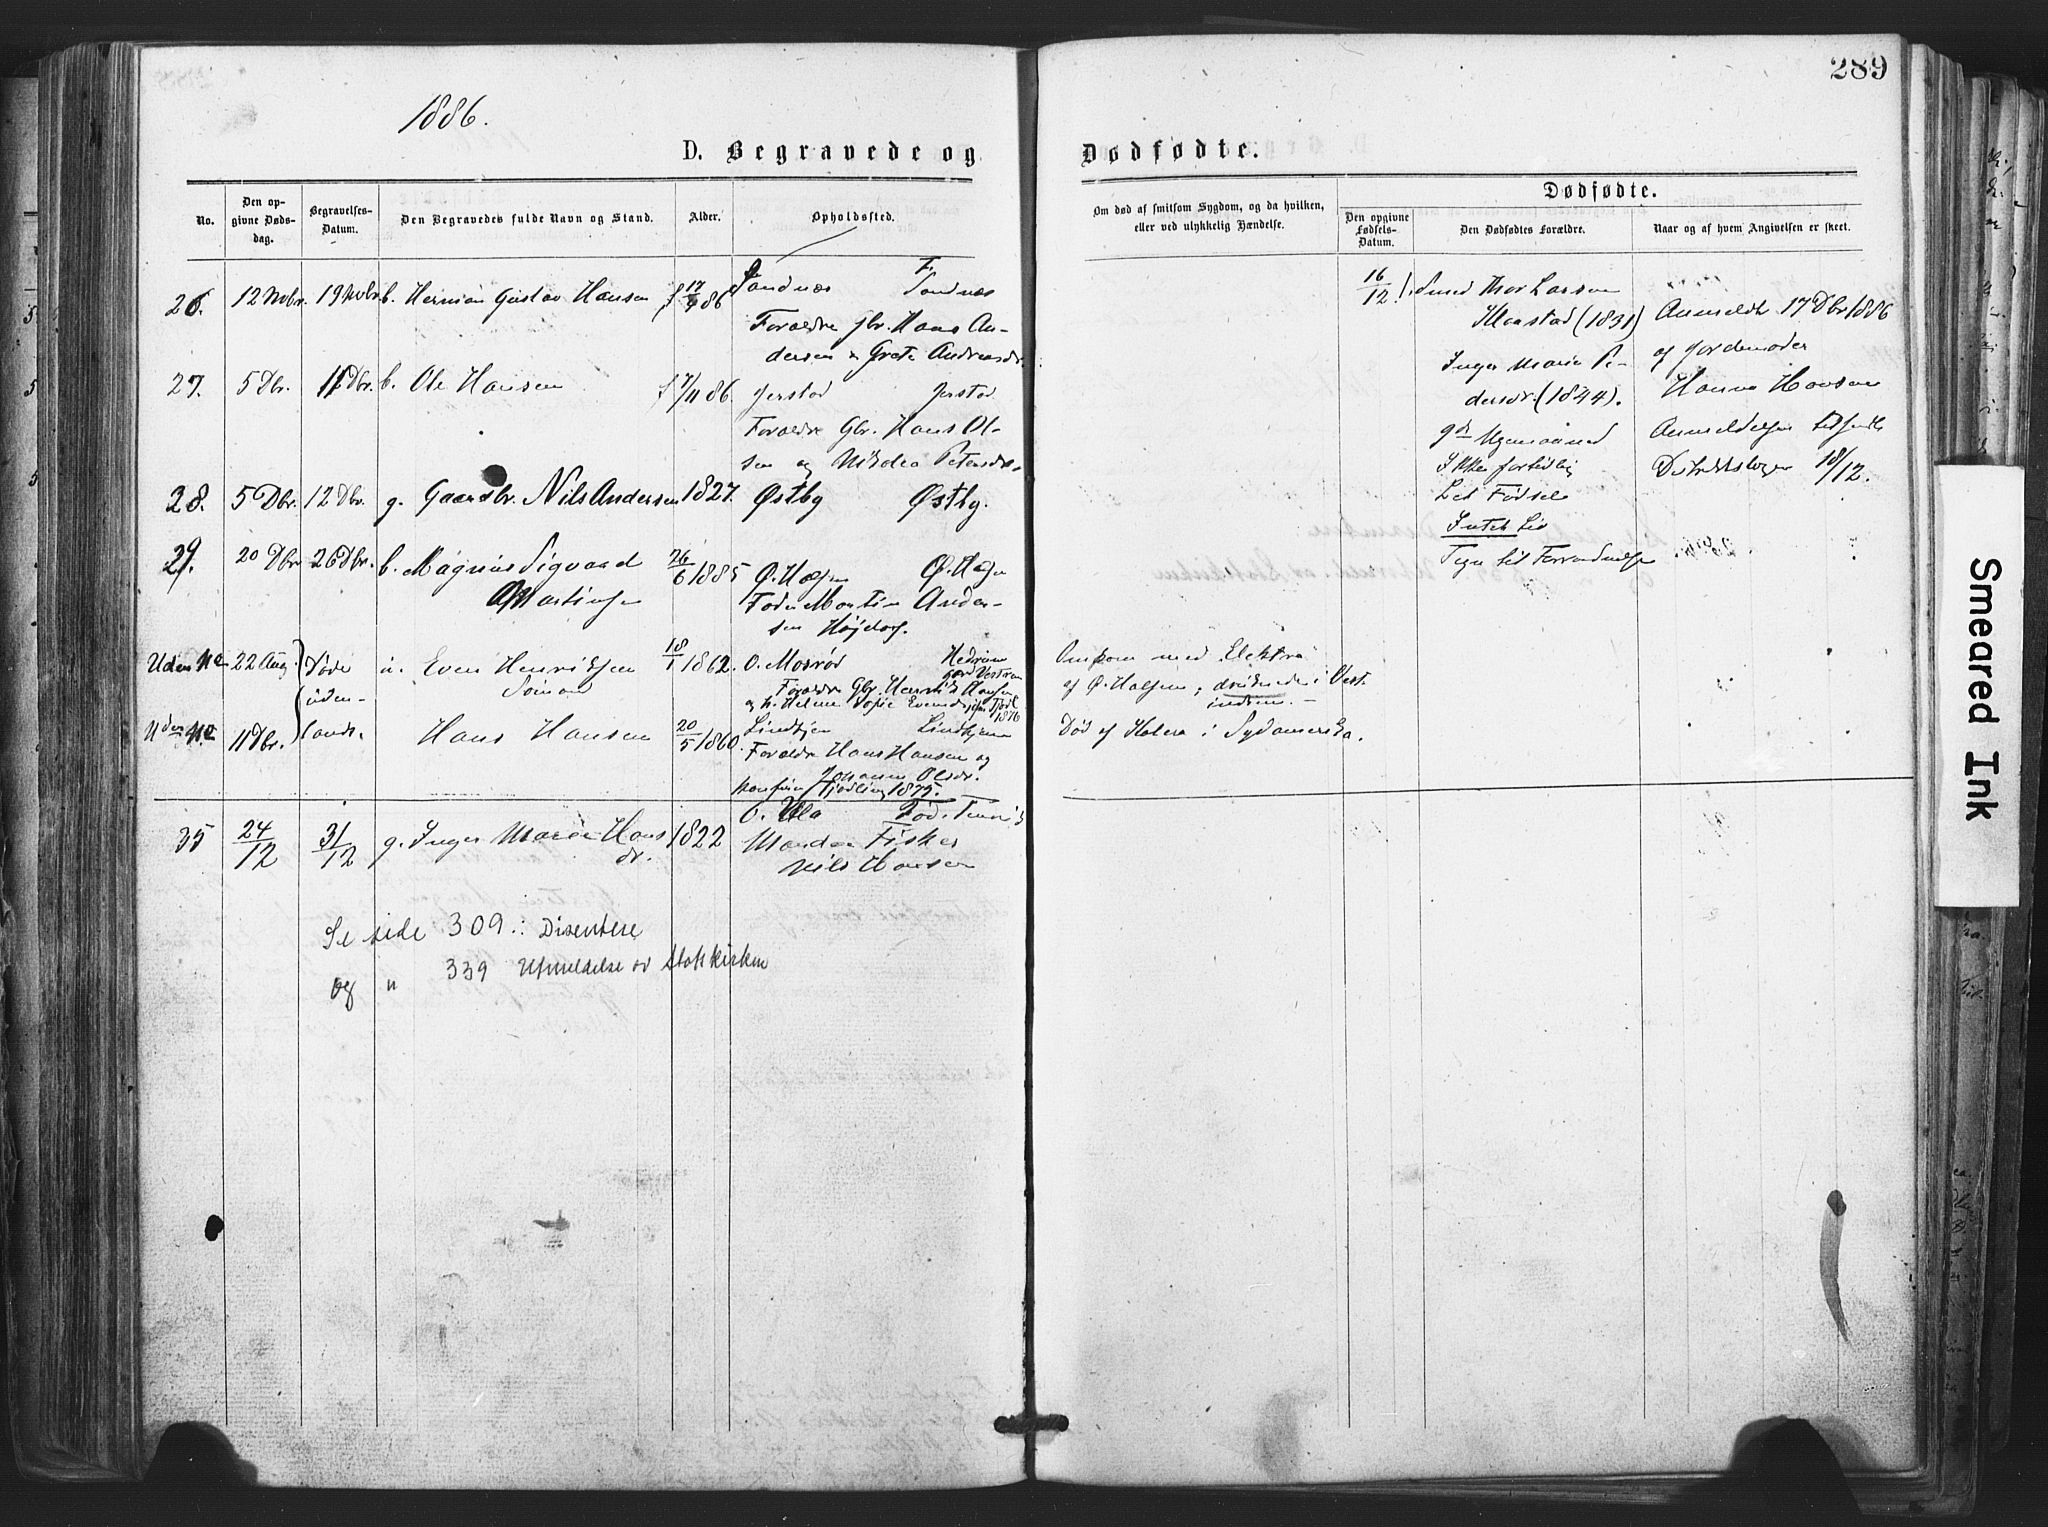 289
1886.
D. Begravede og Dødfødte.
No.
Den op-
givne Døds-
dag.
Begravelses-
Datum.
Den Begravedes fulde Navn og Stand.
Alder.
Opholdssted.
Om død af smitsom Sygdom, og da hvilken,
eller ved ulykkelig Hændelse.
Dødfødte.
Den opgivne
Fødsels-
Datum.
Den Dødfødtes Forældre.
Naar og af hvem Angivelsen er skeet.
26. 12 Nvbr. 19 Nvbr. b. Herman Gustav Hansen 86 Sandnæs Sandnæs
Forældre Gbr. Hans An-
dersen & Grete Andreasdr.
27. 5 Dbr. 11 Dbr. b. Ole Hansen f 7/11 86. Jerstad Jerstad
Forældre Gbr. Hans Ol-
sen og Nikolea Petersdr.
28. 5 Dbr. 12 Dbr. g. Gaardbr. Nils Andersen 1827. Østby Østby.
29. 20 Dbr. 26 Dbr. b. Magnus Sigvard 26/6 1885 Ø. Halsen Ø. Halsen
Martinsen Fader Martin Ander-
sen Højdorf.
Uden No 22 Aug. Døde u. Even Henriksen 18/1 1862. Ø. Mosrød Hedrum
uden- Sømand Forældre Gbr. Henrik Hansen
og h. Helene Sofie Evensd. 1876
Uden No 11 Dbr. lands. Hans Hansen 20/5 1860. Lindhjem Lindhjem
Forældre Hans Hansen og
Johanne Olsdr.
konfirm. Tjødling 1875.
35 24/12 31/12 g. Inger Marie Hans 1822 Ø. Ula Fød.
dr. Manden Fisker
Nils Hansen
Se side 309 :: Disentere
og " 339 Utmeldelse av Statskirken
Omkom med Elektra
af Ø. Halsen, druknede i Vest
indien. –
Død af Kolera i Sydamerika.
16/12 ! Smed Thor Larsen
Klaastad (1831)
Inger Marie Pe-
dersdr. (1844).
Ikke fortidlig
Let Fødsel
Intet Liv
Tegn til Forraadnelse
Anmeldt 17 Dbr 1886
af Jordemoder
Hanna Hansen
Anmeldelsen tilsendt
Distriktslægen 18/12.
Smeared Ink